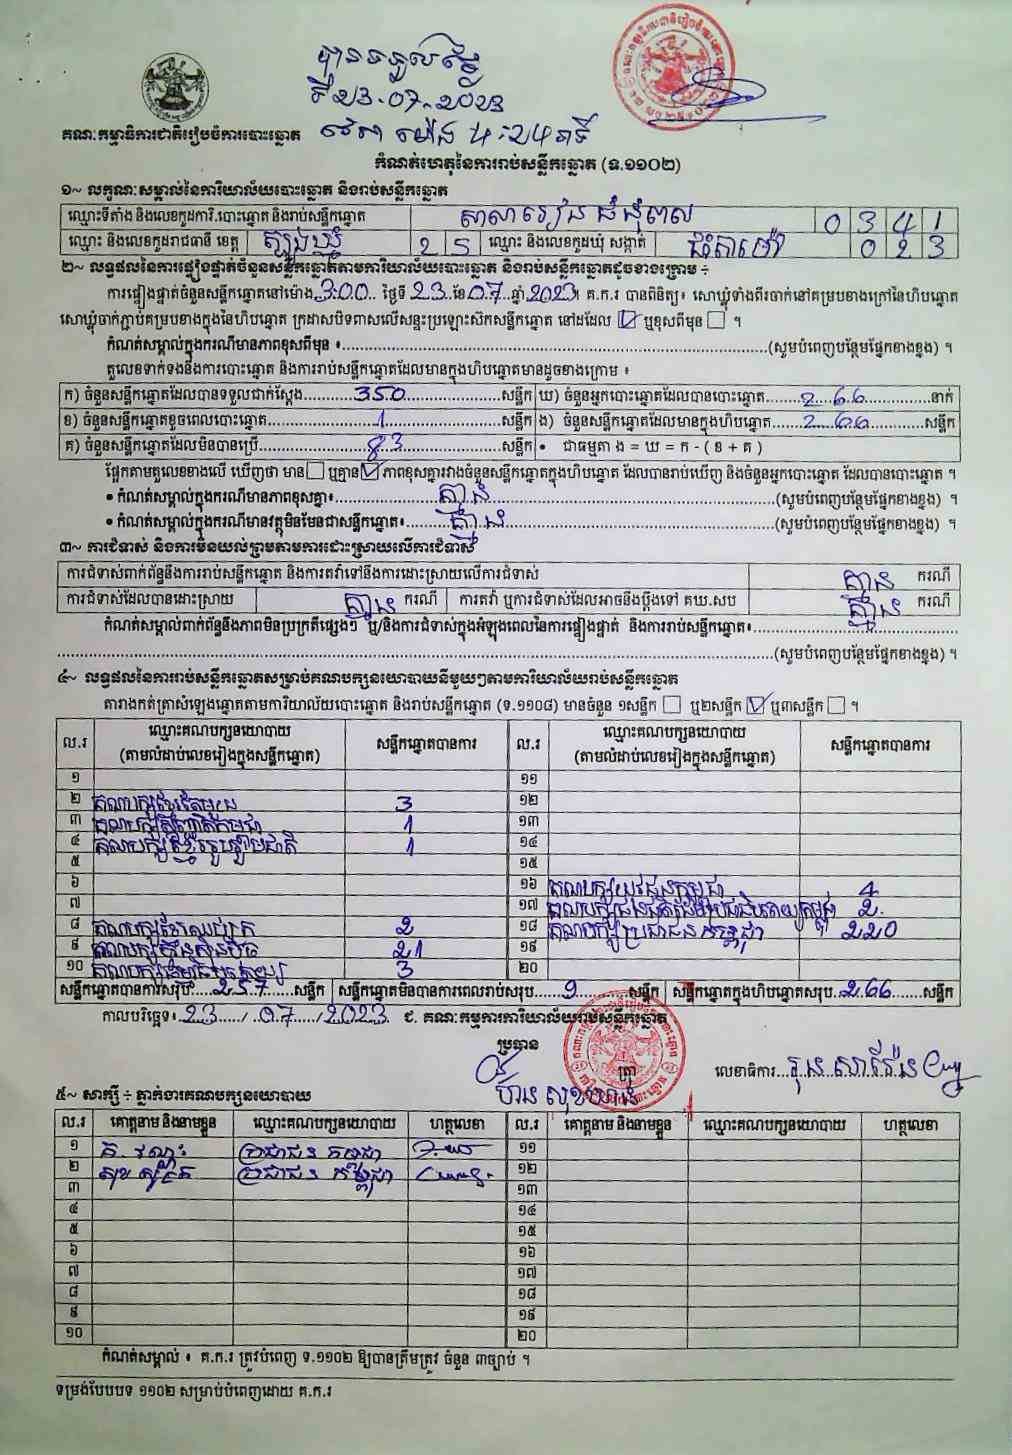 បានទទួលថ្ងៃ
ទី 23.07.2023
វេលា ម៉ោង 4:24 នាទី
គណៈកម្មាធិការជាតិរៀបចំការបោះឆ្នោត
កំណត់ហេតុនៃការរាប់សន្លឹកឆ្នោត (ទ.១១០២)
១~ លក្ខណៈសម្គាល់នៃការិយាល័យបោះឆ្នោត និងរាប់សន្លឹកឆ្នោត
ឈ្មោះទីតាំង និងលេខកូដការិ.បោះឆ្នោត និងរាប់សន្លឹកឆ្នោត សាលារៀន ជំពល 0 3 4 1
ឈ្មោះ និងលេខកូដរាជធានី ខេត្ត ត្បូងឃ្មុំ 2 5 ឈ្មោះ និងលេខកូដឃុំ សង្កាត់ 0 2 3
២~ លទ្ធផលនៃការផ្ទៀងផ្ទាត់ចំនួនសន្លឹកឆ្នោតតាមការិយាល័យបោះឆ្នោត និងរាប់សន្លឹកឆ្នោតដូចខាងក្រោម ÷
ការផ្ទៀងផ្ទាត់ចំនួនសន្លឹកឆ្នោតនៅម៉ោង 3:00 ថ្ងៃទី 23 ខែ 07 ឆ្នាំ 2023។ គ.ក.រ បានពិនិត្យ៖ សោឃ្លុំទាំងពីរចាក់នៅគម្របខាងក្រៅនៃហិបឆ្នោត
សោឃ្លុំចាក់ភ្ជាប់គម្របខាងក្នុងនៃហិបឆ្នោត ក្រដាសបិទពាសលើសន្ទះប្រឡោះស៊កសន្លឹកឆ្នោត នៅដដែល ☑ ឬខុសពីមុន ☐ ។
កំណត់សម្គាល់ក្នុងករណីមានភាពខុសពីមុន ៖ (សូមបំពេញបន្ថែមផ្នែកខាងខ្នង) ។
តួលេខទាក់ទងនឹងការបោះឆ្នោត និងការរាប់សន្លឹកឆ្នោតដែលមានក្នុងហិបឆ្នោតមានដូចខាងក្រោម ៖
ក) ចំនួនសន្លឹកឆ្នោតដែលបានទទួលជាក់ស្តែង 350 សន្លឹក ឃ) ចំនួនអ្នកបោះឆ្នោតដែលបានបោះឆ្នោត 266 នាក់
ខ) ចំនួនសន្លឹកឆ្នោតខូចពេលបោះឆ្នោត 1 សន្លឹក ង) ចំនួនសន្លឹកឆ្នោតដែលមានក្នុងហិបឆ្នោត 266 សន្លឹក
គ) ចំនួនសន្លឹកឆ្នោតដែលមិនបានប្រើ 83 សន្លឹក • ជាធម្មតា ង = ឃ = ក - ( ខ + គ )
ផ្អែកតាមតួលេខខាងលើ ឃើញថា មាន ☐ ឬគ្មាន ☑ ភាពខុសគ្នារវាងចំនួនសន្លឹកឆ្នោតក្នុងហិបឆ្នោត ដែលបានរាប់ឃើញ និងចំនួនអ្នកបោះឆ្នោត ដែលបានបោះឆ្នោត ។
• កំណត់សម្គាល់ក្នុងករណីមានភាពខុសគ្នា៖ គ្មាន (សូមបំពេញបន្ថែមផ្នែកខាងខ្នង) ។
• កំណត់សម្គាល់ក្នុងករណីមានវត្ថុមិនមែនជាសន្លឹកឆ្នោត៖ គ្មាន (សូមបំពេញបន្ថែមផ្នែកខាងខ្នង) ។
៣~ ការជំទាស់ និងការមិនយល់ព្រមតាមការដោះស្រាយលើការជំទាស់
ការជំទាស់ពាក់ព័ន្ធនឹងការរាប់សន្លឹកឆ្នោត និងការតវ៉ាទៅនឹងការដោះស្រាយលើការជំទាស់ គ្មាន ករណី
ការជំទាស់ដែលបានដោះស្រាយ គ្មាន ករណី ការតវ៉ា ឬការជំទាស់ដែលអាចនឹងប្តឹងទៅ គឃ.សប គ្មាន ករណី
កំណត់សម្គាល់ពាក់ព័ន្ធនឹងភាពមិនប្រក្រតីផ្សេងៗ ឬ/និងការជំទាស់ក្នុងអំឡុងពេលនៃការផ្ទៀងផ្ទាត់ និងការរាប់សន្លឹកឆ្នោត៖
(សូមបំពេញបន្ថែមផ្នែកខាងខ្នង) ។
៤~ លទ្ធផលនៃការរាប់សន្លឹកឆ្នោតសម្រាប់គណបក្សនយោបាយនីមួយៗតាមការិយាល័យរាប់សន្លឹកឆ្នោត
តារាងកត់ត្រាសំឡេងឆ្នោតតាមការិយាល័យបោះឆ្នោត និងរាប់សន្លឹកឆ្នោត (ទ.១១០៨) មានចំនួន ១សន្លឹក ☐ ឬ២សន្លឹក ☑ ឬ៣សន្លឹក ☐ ។
ល.រ ឈ្មោះគណបក្សនយោបាយ (តាមលំដាប់លេខរៀងក្នុងសន្លឹកឆ្នោត) សន្លឹកឆ្នោតបានការ ល.រ ឈ្មោះគណបក្សនយោបាយ (តាមលំដាប់លេខរៀងក្នុងសន្លឹកឆ្នោត) សន្លឹកឆ្នោតបានការ
១ ១១
២ គណបក្សខ្មែរតែមួយ 3 ១២
៣ គណបក្ស 1 ១៣
៤ គណបក្សខ្មែររួបរួមជាតិ 1 ១៤
៥ ១៥
៦ ១៦ គណបក្សយុវជនកម្ពុជា 4
៧ ១៧ គណបក្ស 2
៨ គណបក្ស 2 ១៨ គណបក្សប្រជាជនកម្ពុជា 220
៩ គណបក្សហ៊្វុនស៊ិនប៉ិច 21 ១៩
១០ គណបក្ស 3 ២០
សន្លឹកឆ្នោតបានការសរុប 257 សន្លឹក សន្លឹកឆ្នោតមិនបានការពេលរាប់សរុប 9 សន្លឹក សន្លឹកឆ្នោតក្នុងហិបឆ្នោតសរុប 266 សន្លឹក
កាលបរិច្ឆេទ៖ 23 / 07 / 2023 ជ. គណៈកម្មការការិយាល័យរាប់សន្លឹកឆ្នោត
ប្រធាន
ត្រា លេខាធិការ
៥~ សាក្សី ÷ ភ្នាក់ងារគណបក្សនយោបាយ
ល.រ គោត្តនាម និងនាមខ្លួន ឈ្មោះគណបក្សនយោបាយ ហត្ថលេខា ល.រ គោត្តនាម និងនាមខ្លួន ឈ្មោះគណបក្សនយោបាយ ហត្ថលេខា
១ គ. វណ្ណៈ ប្រជាជន កម្ពុជា ១១
២ សុខ ប្រជាជន កម្ពុជា ១២
៣ ១៣
៤ ១៤
៥ ១៥
៦ ១៦
៧ ១៧
៨ ១៨
៩ ១៩
១០ ២០
កំណត់សម្គាល់ ៖ គ.ក.រ ត្រូវបំពេញ ទ.១១០២ ឱ្យបានត្រឹមត្រូវ ចំនួន ៣ច្បាប់ ។
ទម្រង់បែបបទ ១១០២ សម្រាប់បំពេញដោយ គ.ក.រ